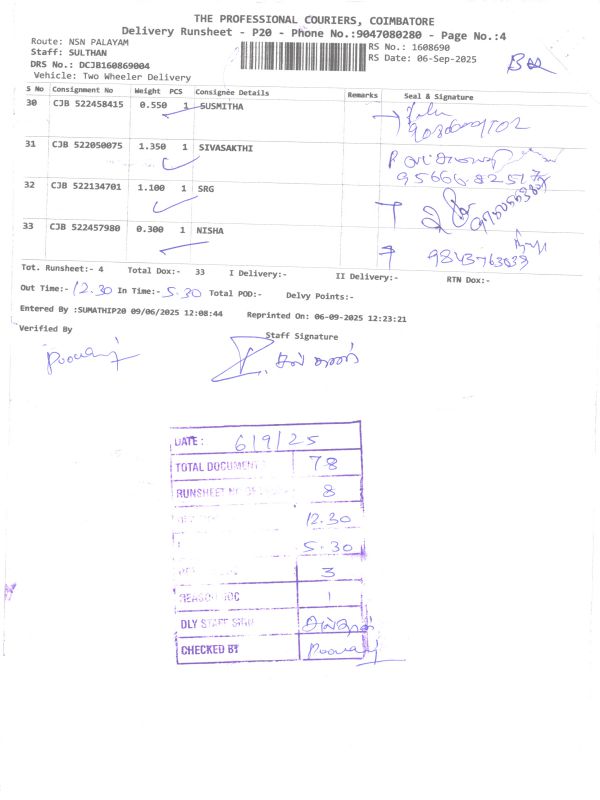 THE PROFESSIONAL COURIERS, COIMBATORE
Delivery Runsheet - P20 - Phone No.:9047080280 - Page No.:4
Route: NSN PALAYAM
RS No.: 1608690
Staff: SULTHAN
RS Date: 06-Sep-2025
DRS No.: DCJB160869004
Vehicle: Two Wheeler Delivery
S No Consignment No Weight PCS Consignee Details Remarks Seal & Signature
30 CJB 522458415 0.550 1 SUSMITHA
31 CJB 522050075 1.350 1 SIVASAKTHI
32 CJB 522134701 1.100 1 SRG
33 CJB 522457980 0.300 1 NISHA
Tot. Runsheet:- 4 Total Dox:- 33 I Delivery:- II Delivery:- RTN Dox:-
Out Time:- 12.30 In Time:- 5.30 Total POD:- Delvy Points:-
Entered By :SUMATHIP20 09/06/2025 12:08:44 Reprinted On: 06-09-2025 12:23:21
Verified By
Staff Signature
DATE : 6/9/25
TOTAL DOCUMENT 78
RUNSHEET 8
12.30
5.30
3
REASON DOC 1
DLY STAFF SIGN
CHECKED BY